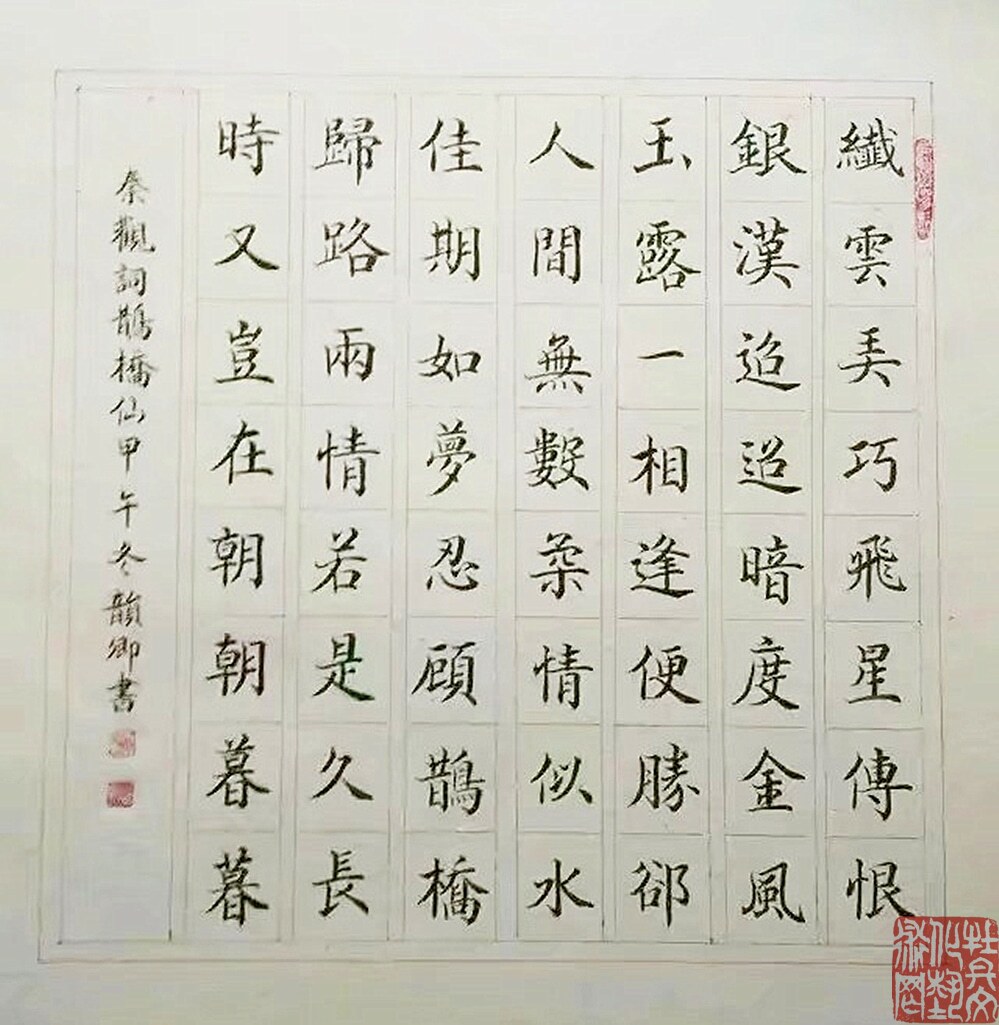 纖雲弄巧飛星傳恨
銀漢迢迢暗度金風
玉露一相逢便勝郤
人間無數柔情似水
佳期如夢忍顧鵲橋
歸路兩情若是久長
時又豈在朝朝暮暮
秦觀詞鵲橋仙甲午冬韻卿書